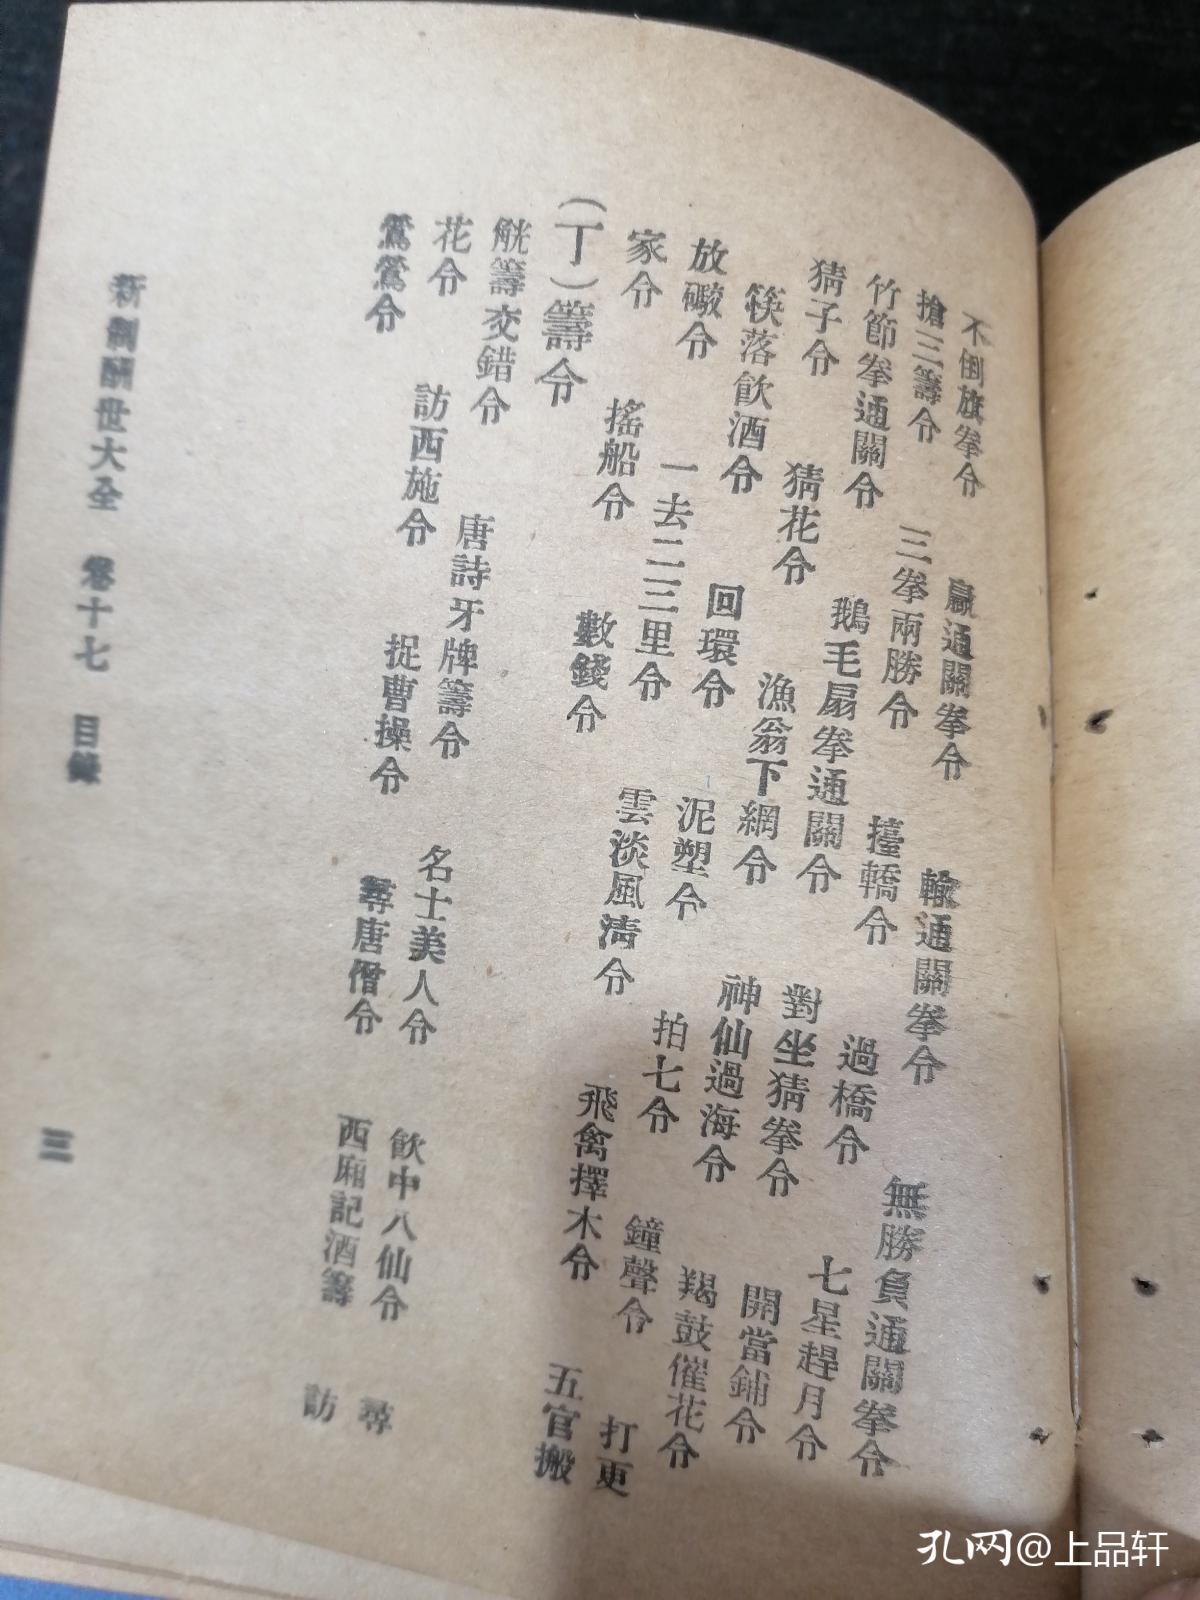 不倒旗拳令　贏通關拳令　輸通關拳令　無勝負通關拳令
搶三籌令　三拳兩勝令　擡轎令　過橋令　七星趕月令
竹節拳通關令　鵝毛扇拳通關令　對坐猜拳令　開當鋪令
猜子令　猜花令　漁翁下網令　神仙過海令　羯鼓催花令
筷落飲酒令　回環令　泥塑令　拍七令　鐘聲令　打更
放礮令　一去二三里令　雲淡風清令　飛禽擇木令　五官搬
家令　搖船令　數錢令
（丁）籌令
觥籌交錯令　唐詩牙牌籌令　名士美人令　飲中八仙令　尋
花令　訪西施令　捉曹操令　尋唐僧令　西廂記酒籌　訪
鶯鶯令
新制酬世大全　卷十七　目錄　三
孔网@上品轩